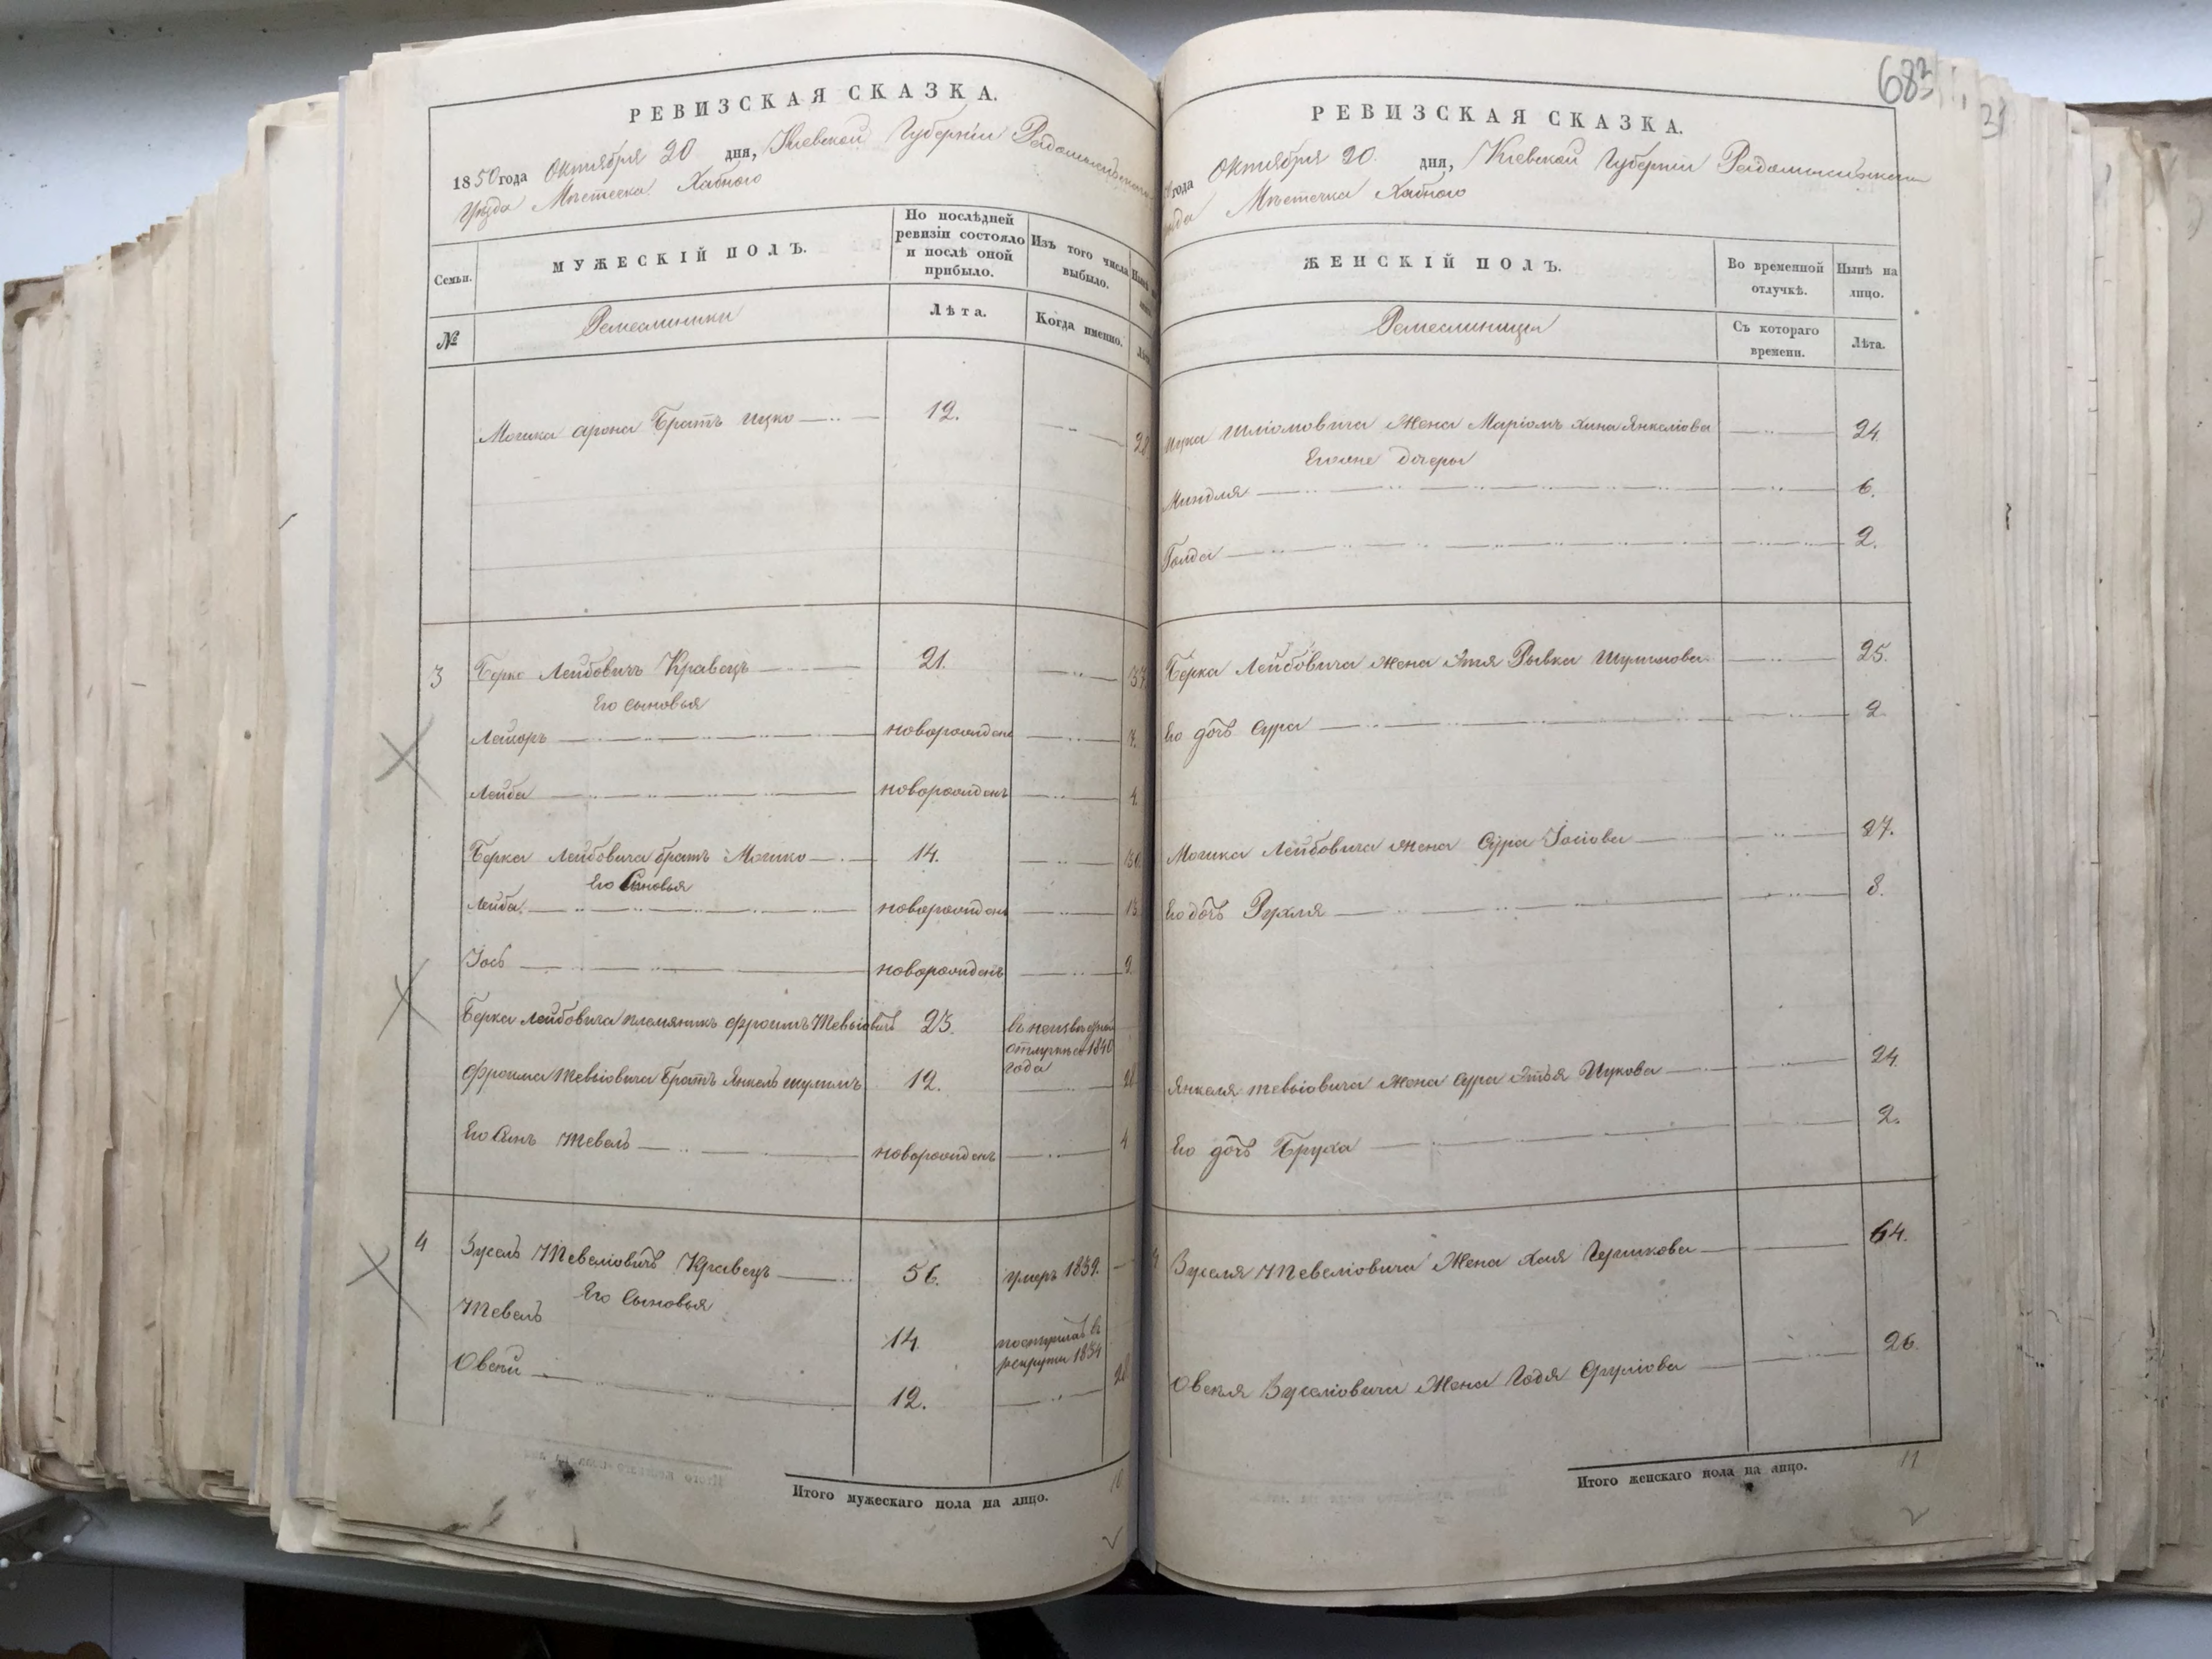 РЕВИЗСКАЯ СКАЗКА.
1850 года Октября 20 дня, Кіевской Губерніи Радомысльскаго
Уезда Местечка Хабного
Семьи.
МУЖЕСКІЙ ПОЛЪ.
По послѣдней ревизіи состояло и послѣ оной прибыло.
Изъ того числа выбыло.
№
Ремеслиники
Лѣта.
Когда именно.
Мошка Арона Братъ Ицко 12. 28
3 Берко Лейбовичъ Кравецъ 21. 37
Его сыновья
новорожденъ 7.
Лейба новорожденъ 4.
Берка Лейбовича братъ Мошко 14. 30
Его Сыновья
Лейба новорожденъ 13
Іось новорожденъ 9.
Берка Лейбовича племяникъ Фроимъ Тевьіовичъ 23. въ неизвесной отлучке съ 1840 года
Фроима Тевьіовича Братъ Янкель шулимъ 12. 28
Его Сынъ Тевель новорожденъ 4
4 Зусель Тевеліовичъ Кравецъ 56. умеръ 1839.
Его Сыновья
Тевель 14. поступилъ въ рекруты 1834
Овсей 12. 28
Итого мужескаго пола на лицо. 10
683
РЕВИЗСКАЯ СКАЗКА.
года Октября 20. дня, Кіевской Губерніи Радомысльскаго
Местечка Хабного
ЖЕНСКІЙ ПОЛЪ.
Во временной отлучкѣ.
Нынѣ на лицо.
Ремеслиници
Съ котораго времени.
Лѣта.
Ицка Шліомовича Жена Маріомъ Хина Янкеліова 24.
Ецоине дочеры
Миндля 6.
Голда 2.
Берка Лейбовича жена Этя Рывка Шулимова 25.
Его дочь Сура 2
Мошка Лейбовича жена Сура Іосіова 27.
Его дочь Рухля 8.
Янкеля Тевьіовича жена Сура Этья Ицкова 24.
Его дочь Бруха 2.
4 Зуселя Тевеліовича Жена Хая Гершкова 64.
Овсея Зуселіовича Жена Годя Сруліова 26.
Итого женскаго пола на лицо. 11